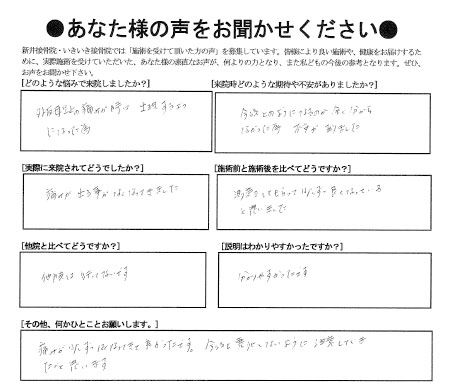 ●あなた様の声をお聞かせください●
新井接骨院・いきいき接骨院では「施術を受けて頂いた方の声」を募集しています。皆様により良い施術や、健康をお届けするた
めに、実際施術を受けていただいた、あなた様の素直なお声が、何よりの力となり、また私どもの今後の参考となります。ぜひ、
お声をお聞かせ下さい。
[どのような悩みで来院しましたか？]
[来院時どのような期待や不安がありましたか？]
痛みが 出現するよう
になった為
今後どのようになるのか 全く分から
なかった為 不安がありました
[実際に来院されてどうでしたか？]
[施術前と施術後を比べてどうですか？]
痛みが 出る事がなくなってきました
施術してもらって 良くなっている
と思いました
[他院と比べてどうですか？]
[説明はわかりやすかったですか？]
他院は 行ってないです
分かりやすかったです
[その他、何かひとことお願いします。]
痛みが なくなってきて 良かったです。今後も 悪化しないように
たいと思います